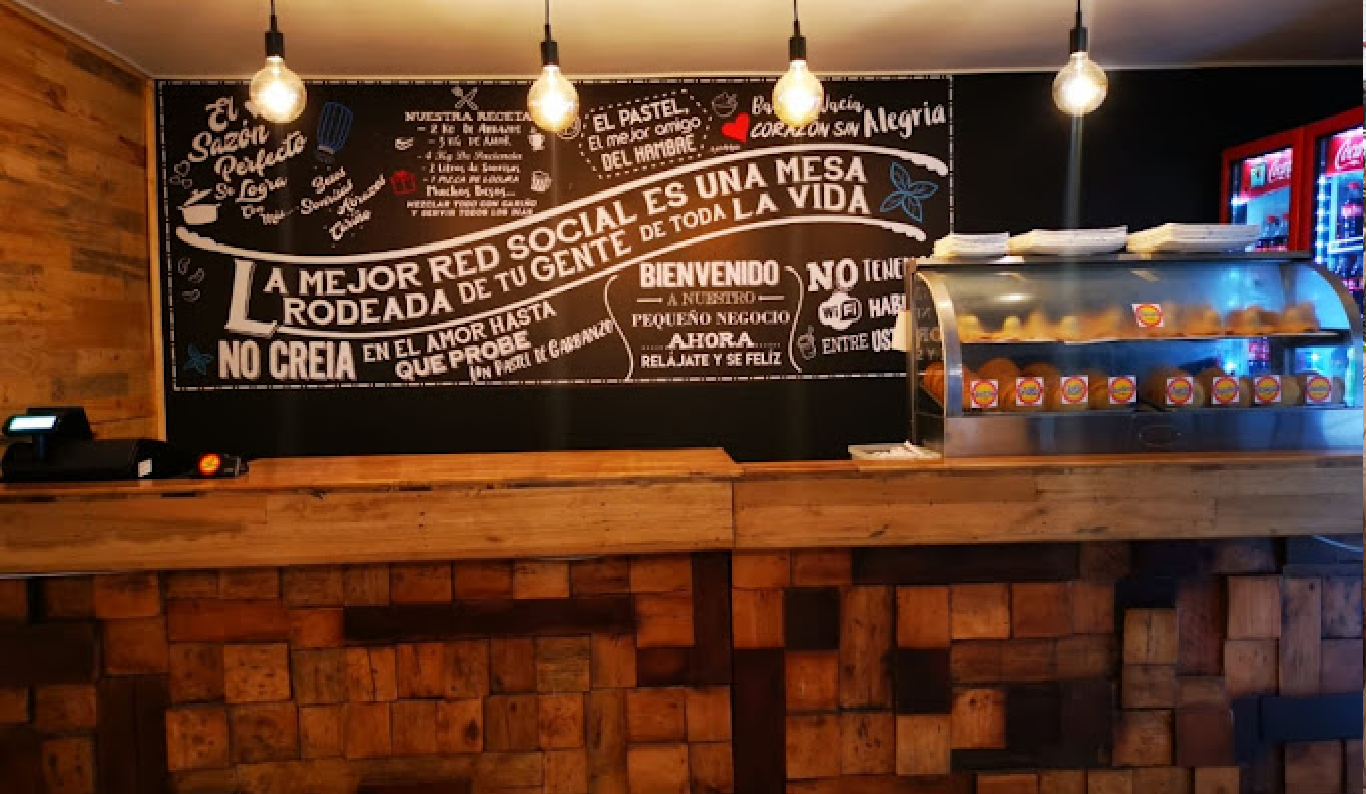 El
Sazón
Perfecto
Se Logra
Con
Más
Besos
Sonrisas
Abrazos
Cariño
NUESTRA RECETA
- 4 Kg De Paciencia
- 1 PIZCA DE LOCURA
Muchos Besos...
MEZCLAR TODO CON CARIÑO
Y SERVIR TODOS LOS DIAS
EL PASTEL,
El mejor amigo
DEL HAMBRE
Vacía
CORAZÓN SIN Alegria
LA MEJOR RED SOCIAL ES UNA MESA
RODEADA DE TU GENTE DE TODA LA VIDA
NO CREIA EN EL AMOR HASTA
QUE PROBE
Un Pastel de Garbanzo
BIENVENIDO
A NUESTRO
PEQUEÑO NEGOCIO
AHORA
RELÁJATE Y SE FELÍZ
NO
WiFi
ENTRE